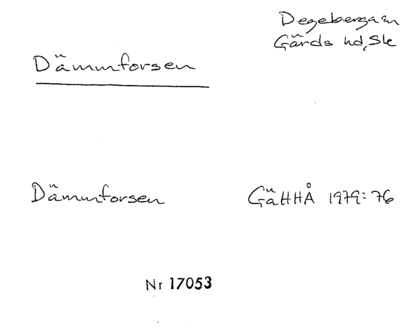 Degeberga sn
Gärds hd, Sk
Dämmforsen
Dämmforsen GäHHÅ 1979:76
Nr 17053